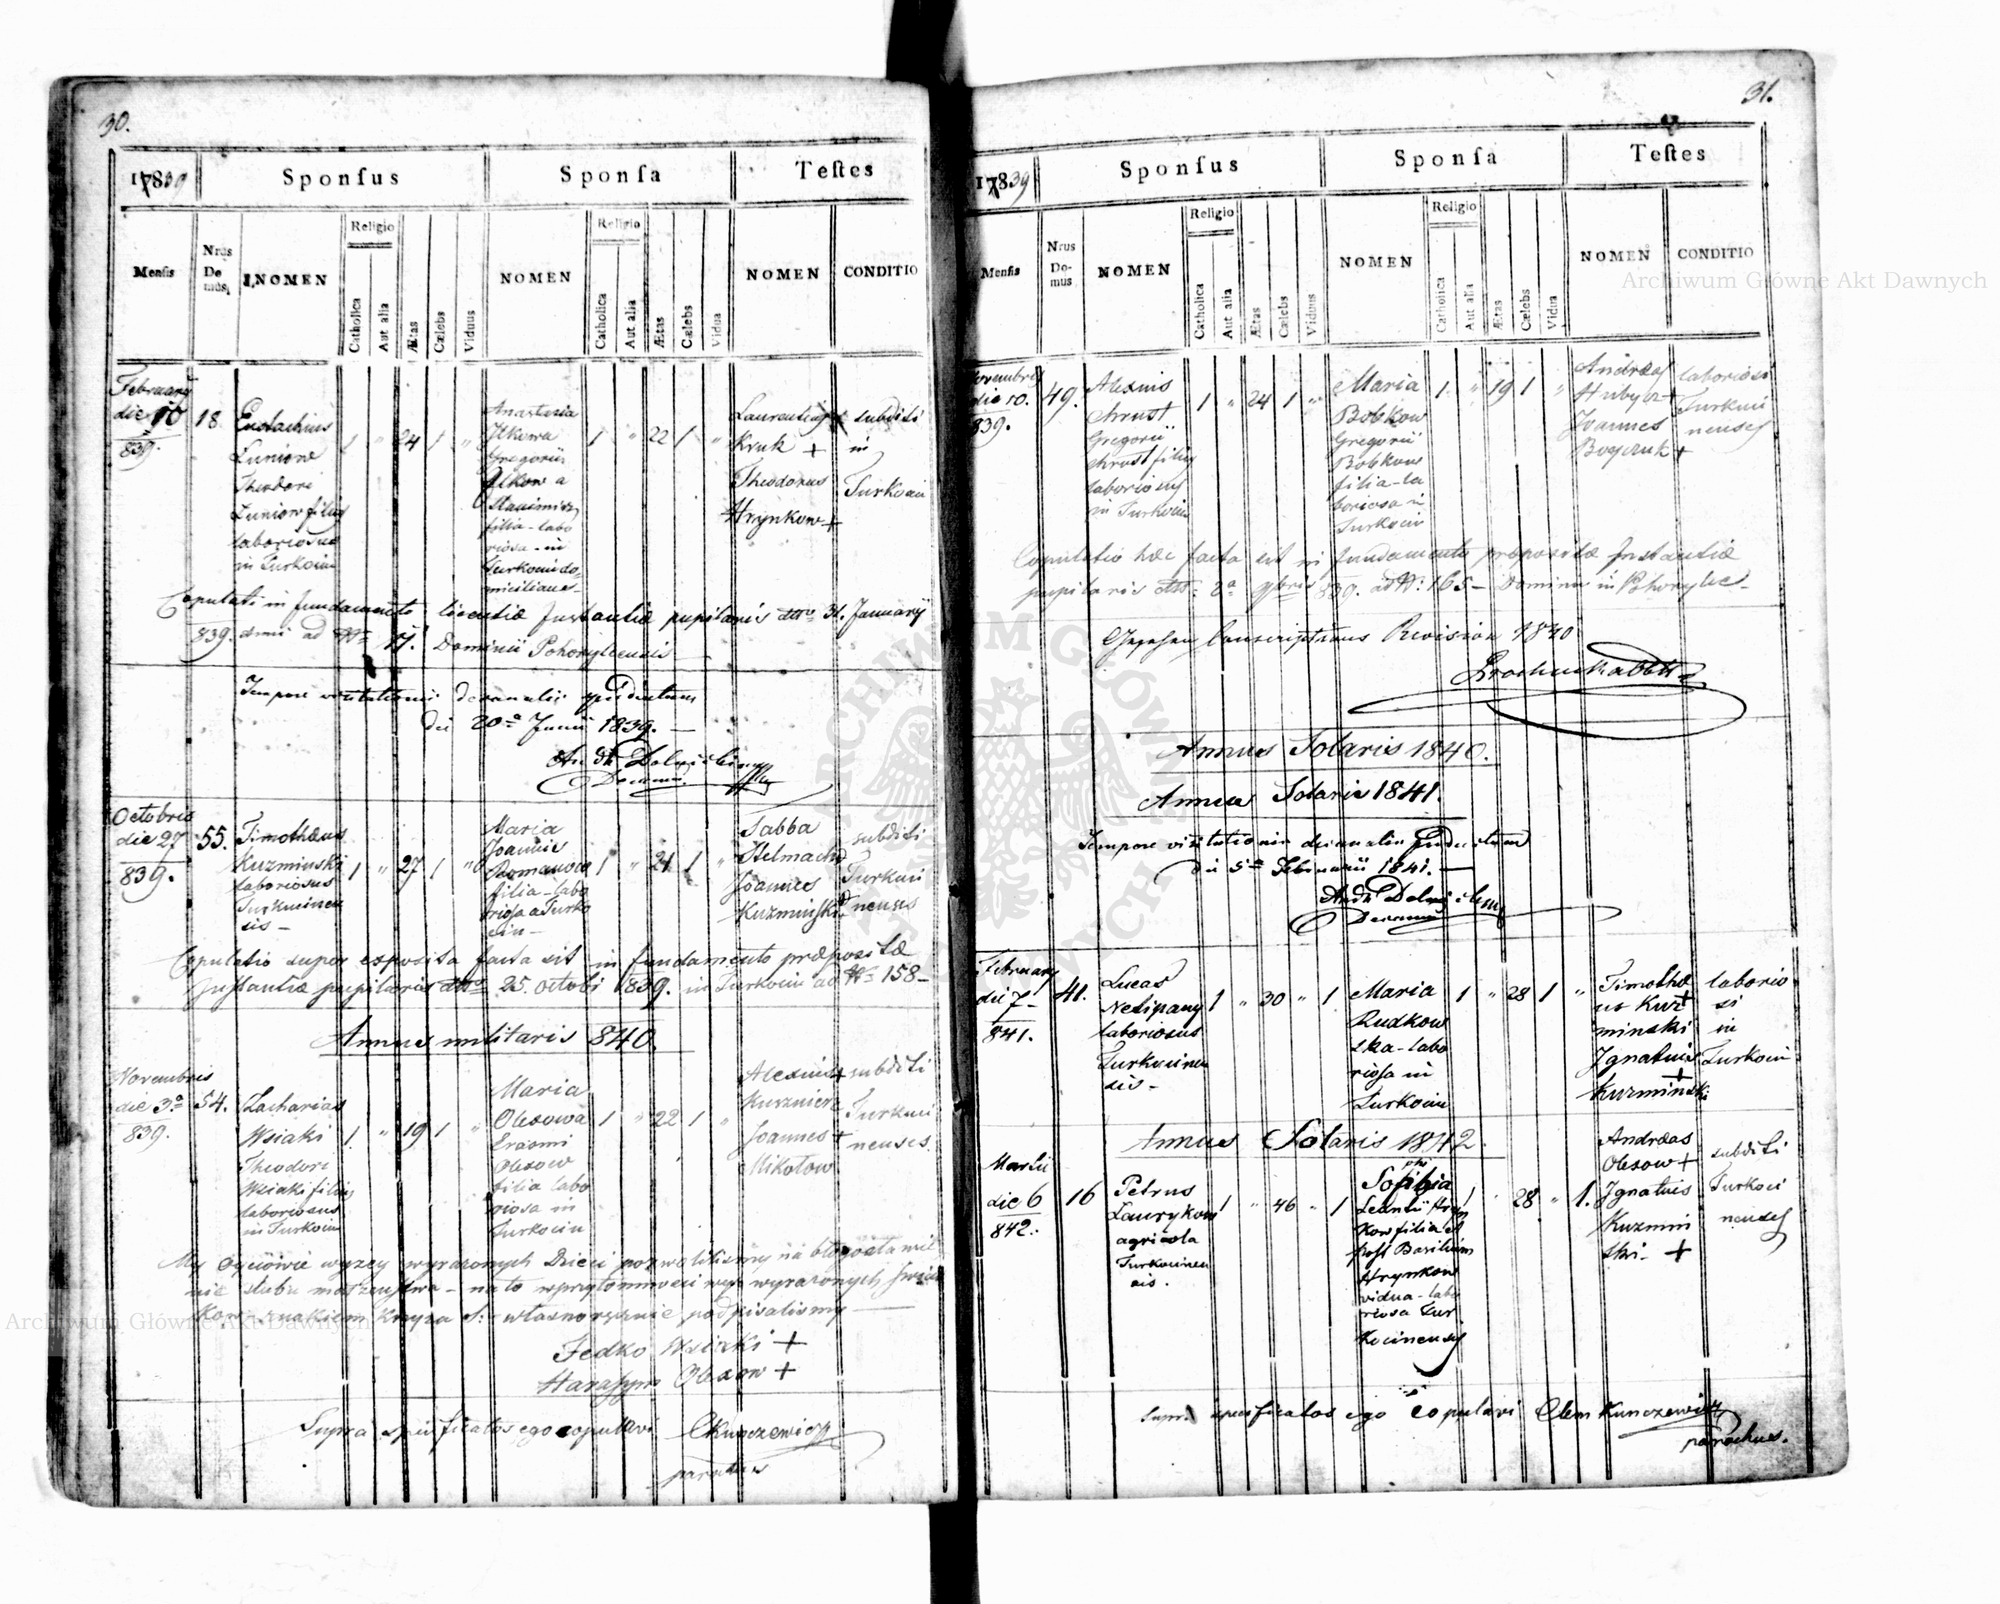 30.
1839
Sponſus
Sponſa
Teſtes
Menſis
Nrus Domus
NOMEN
Religio
Catholica
Aut alia
Ætas
Cælebs
Viduus
NOMEN
Religio
Catholica
Aut alia
Ætas
Cælebs
Vidua
NOMEN
CONDITIO
February
die 10
839.
18
Eustachius
Luniow
Theodori
Luniow filius
laboriosus
in Turkocin
1 " 24 1 "
Anastasia
Ilkowa
Gregorii
Ilkow a
filia - labo
riosa - in
Turkocin do-
miciliana -
1 " 22 1 "
Laurentius +
Kruk +
Theodorus
Hrynkow +
subditi
in
Turkocin
Copulati in fundamento licentiæ Instantiæ pupilaris 31. January
839. ad Dominii Pohorylcensis
Tempore visitationis decanalis
die 20a Junii 1839.
Octobris
die 27
839.
55.
Timothæus
Kuzminski
laboriosus
Turkocinen
sis -
1 " 27 1 "
Maria
Joannis
Romanow
filia - labo
riosa a Turko
cin -
1 " 21 1 "
Sabba
Stelmach
Joannes
Kuzminski
subditi
Turkoci
nensis
Copulatio super exposita facta est in fundamento præpositæ
Instantiæ pupilaris 25. octobr 1839. in Turkocin ad Nr 158 -
Annus militaris 840.
Novembris
die 3a
839.
54.
Zacharias
Wsiaki
Theodori
Wsiaki filius
laboriosus
in Turkocin
1. " 19 1 "
Maria
Olexowa
Erasmi
Olexow
filia labo
riosa in
Turkocin
1 " 22 1 "
Alexius +
Kusznierz
Joannes +
Mikołow
subditi
Turkoci
nensis.
My Oycowie wyzey wyrazonych Dzieci pozwolilismy na błogosławie
nie slubu małzenstwa - na to w przytomnosci wyz wyrazonych Swiad
kow znakiem Krzyza S: własnoręcznie podpisalismy
Fedko Wsiaki +
Harasym Olexow +
Supra specificatos ego copulavi CKunczewicz
parochus
31.
1839
Sponſus
Sponſa
Teſtes
Menſis
Nrus Domus
NOMEN
Religio
Catholica
Aut alia
Ætas
Cælebs
Viduus
NOMEN
Religio
Catholica
Aut alia
Ætas
Cælebs
Vidua
NOMEN
CONDITIO
Novembris
die 10.
839.
49.
Alexius
Chrust
Gregorii
Chrust filius
laboriosus
in Turkocin
1 " 24 1 "
Maria
Bobkow
Gregorii
Bobkow
filia - la
boriosa in
Turkocin
1. " 19 1 "
Andreas
Joannes
Boyczuk +
laboriosi
Turkoci
nenses
Copulatio hæc facta est in fundamento præpositæ Instantiæ
pupilaris 2a 9bris 839. ad Nr: 165 - Dominii in Pohorylce -
Gesehen Conscriptions Revision 1840
Annus Solaris 1840.
Annus Solaris 1841.
Tempore visitationis decanalis
die 5a Februarii 1841.
February
die 7
841.
41.
Lucas
Nesipany
laboriosus
Turkocinen
sis -
1 " 30 " 1
Maria
Rudkow
ska - labo
riosa in
Turkocin
1 " 28 1 "
Timothæ
us Kuz +
minski
Ignatius
+
Kuzminski
laborio
si
in
Turkocin
Annus Solaris 1842.
Martii
die 6
842.
16
Petrus
Laurykow
agricola
Turkocinen
sis.
1 " 46 " 1
Sophia
Leontii Hryn
kow filia et
post Basilium
Hrynkow
vidua - labo
riosa Tur
kocinensis
1 " 28 " 1.
Andreas
Olexow +
Ignatius
Kuzmin
ski - +
subditi
Turkoci
nenses
Supra specificatos ego copulavi Clem Kunczewicz
parochus.
Archiwum Główne Akt Dawnych
Archiwum Główne Akt Dawnych
ARCHIWUM GŁÓWNE AKT DAWNYCH